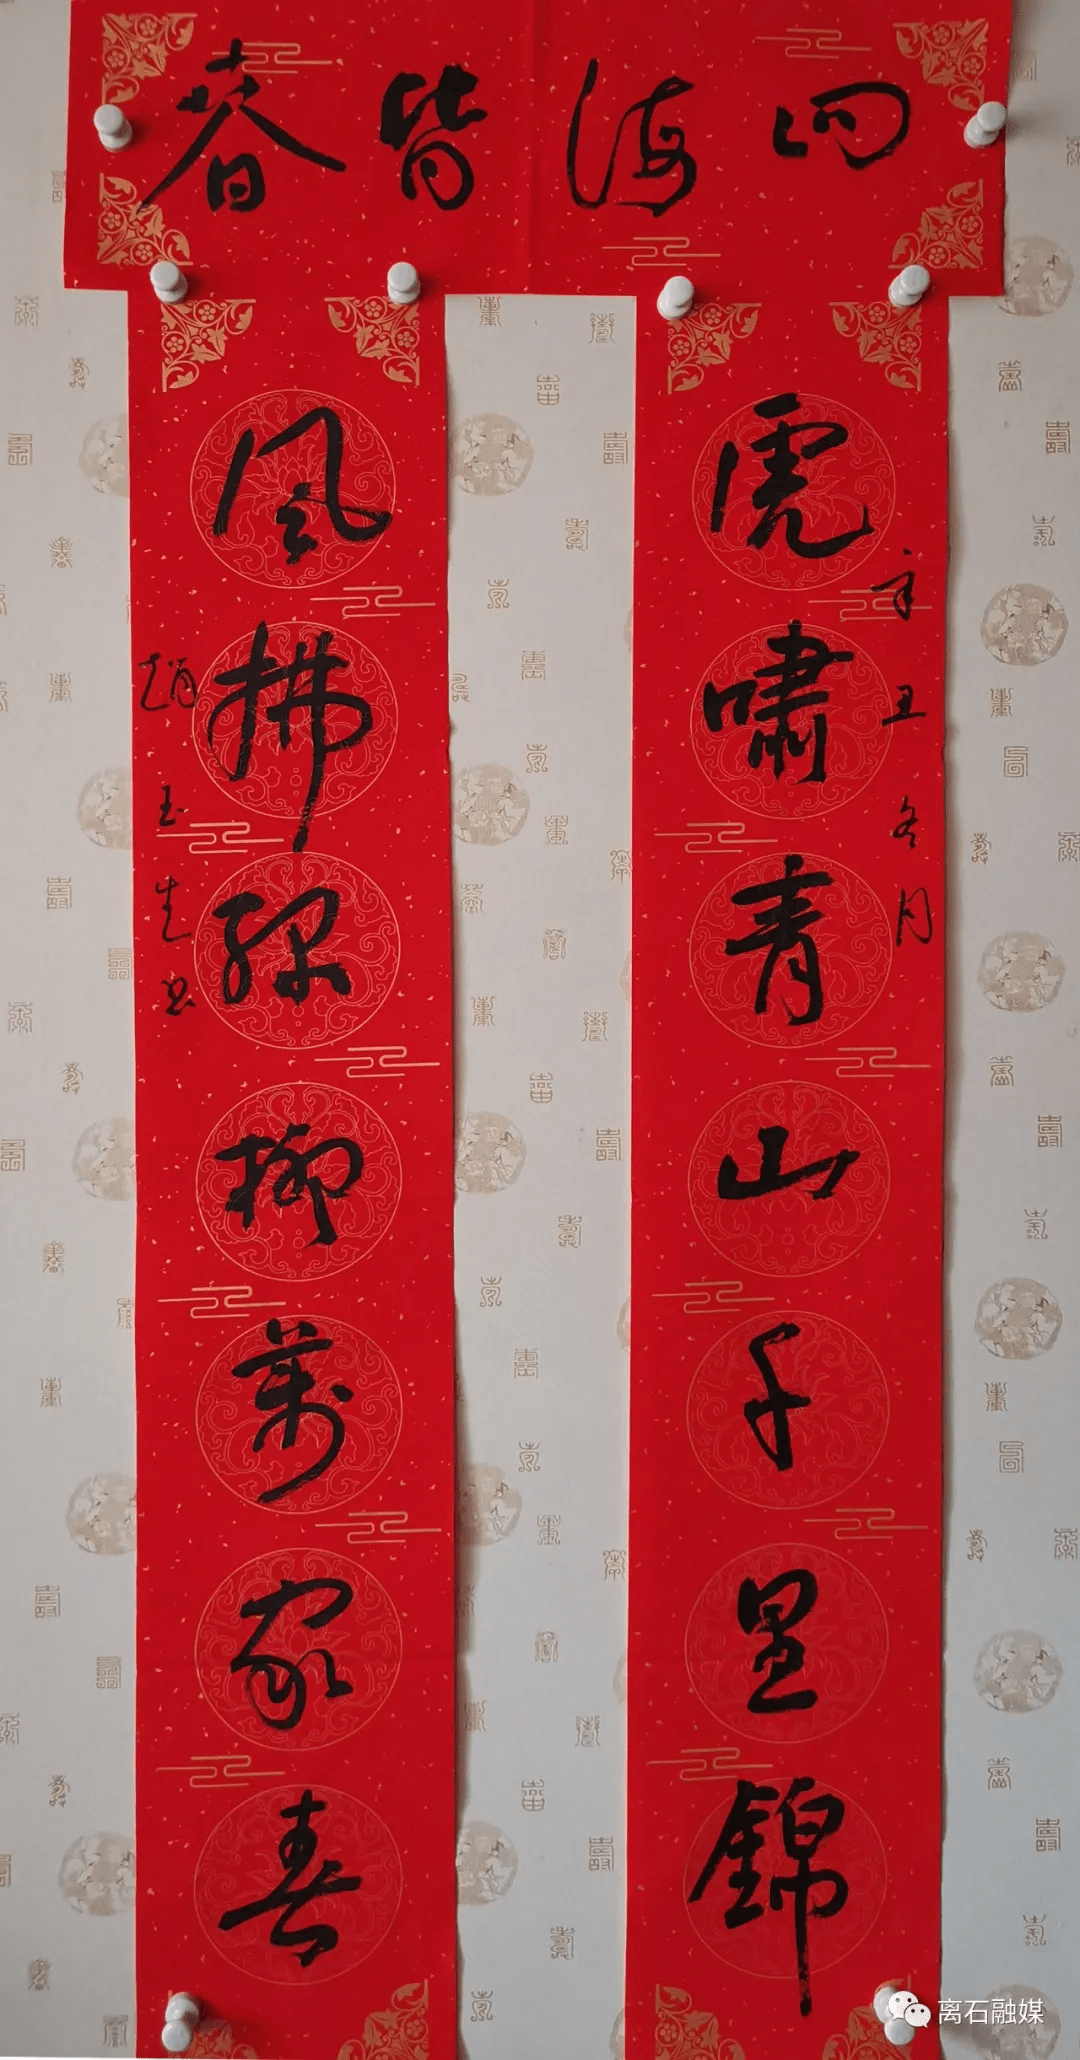 四海皆春
虎啸青山千里锦
辛丑冬月
风拂绿柳万家春
赵玉生书
离石融媒